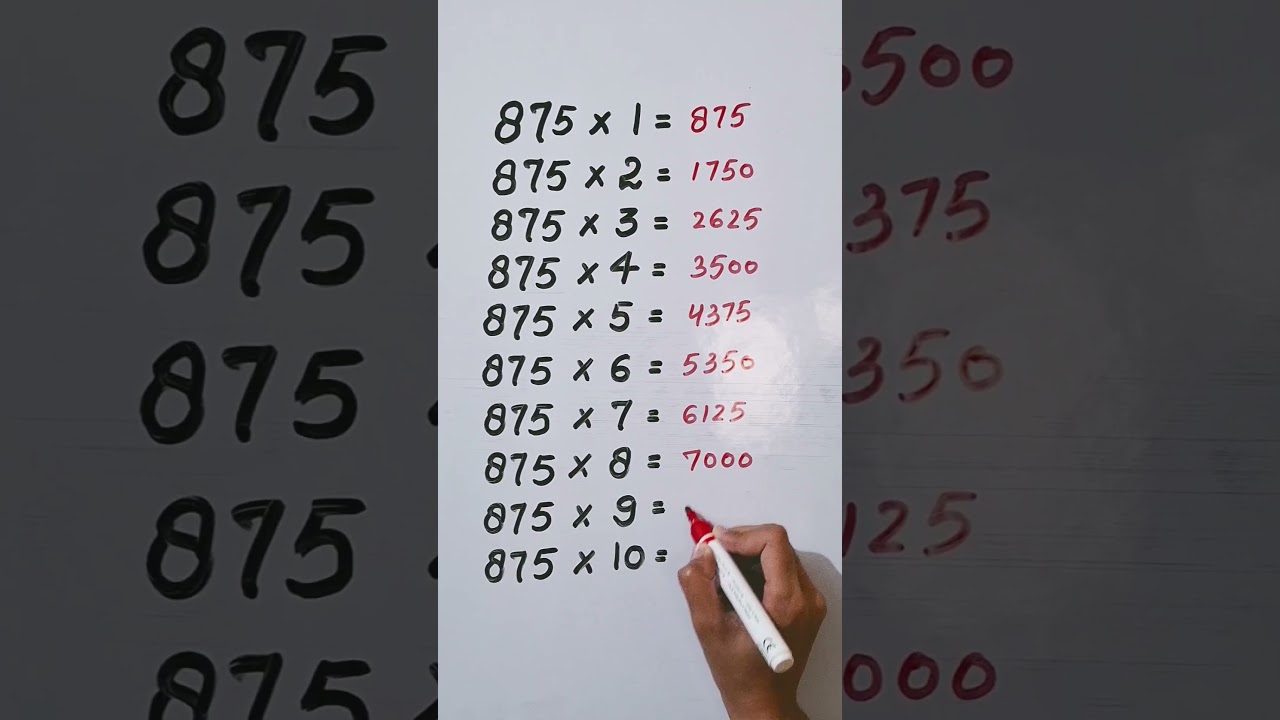 875 x 1 = 875
875 x 2 = 1750
875 x 3 = 2625
875 x 4 = 3500
875 x 5 = 4375
875 x 6 = 5350
875 x 7 = 6125
875 x 8 = 7000
875 x 9 =
875 x 10 =